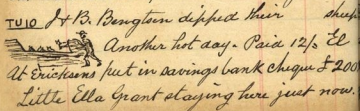 TU 10 J & B. Bengtsen dipped their sheep
Another hot day - Paid 12/- El
At Ericksens put in savings bank cheque £200
Little Ella Grant staying here just now.